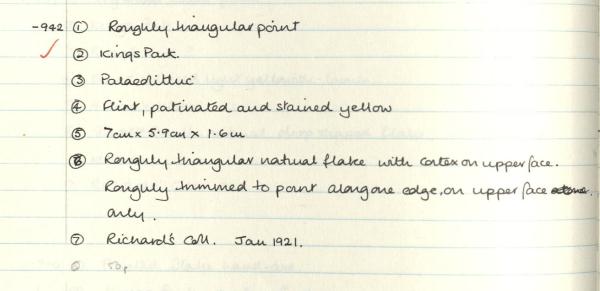 -942 ① Roughly triangular point
② Kings Park.
③ Palaeolithic
④ Flint, patinated and stained yellow
⑤ 7cm x 5.9cm x 1.6cm
⑥ Roughly triangular natural flake with cortex on upper face.
Roughly trimmed to point along one edge, on upper face
only.
⑦ Richard's Coll. Jan 1921.